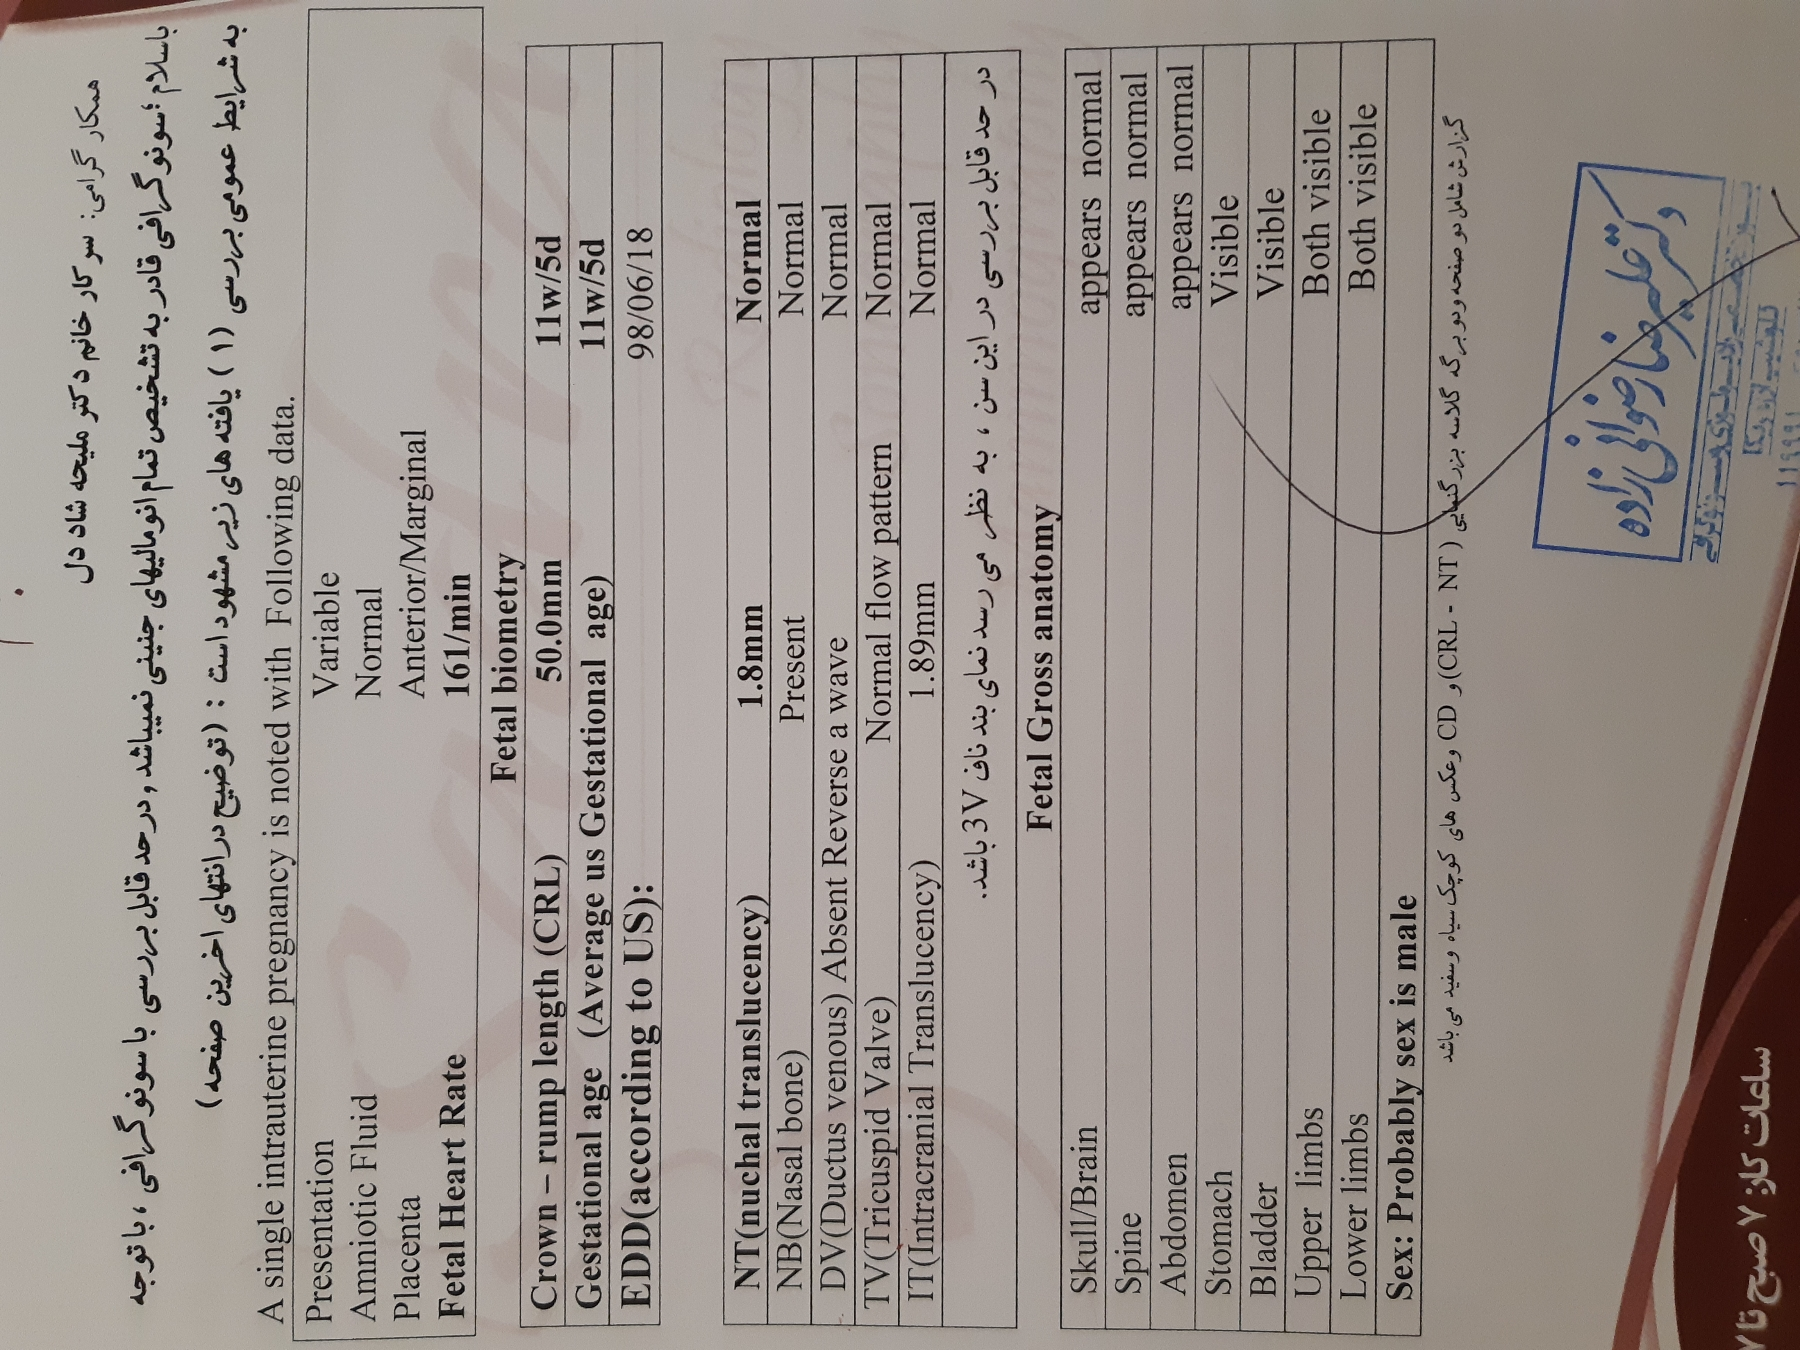 همکار گرامی: سرکار خانم دکتر ملیحه شاد دل
باسلام ؛سونوگرافی قادر به تشخیص تمام انومالیهای جنینی نمیباشد و در حد قابل بررسی با سونوگرافی ، با توجه
به شرایط عمومی بررسی (۱) یافته های زیر مشهود است : (توضیح در انتهای اخرین صفحه)
A single intrauterine pregnancy is noted with Following data.
Presentation Variable
Amniotic Fluid Normal
Placenta Anterior/Marginal
Fetal Heart Rate 161/min
Fetal biometry
Crown – rump length (CRL) 50.0mm 11w/5d
Gestational age (Average us Gestational age) 11w/5d
EDD(according to US): 98/06/18
NT(nuchal translucency) 1.8mm Normal
NB(Nasal bone) Present Normal
DV(Ductus venous) Absent Reverse a wave Normal
TV(Tricuspid Valve) Normal flow pattern Normal
IT(Intracranial Translucency) 1.89mm Normal
در حد قابل بررسی در این سن ، به نظر می رسد نمای بند ناف 3V باشد.
Fetal Gross anatomy
Skull/Brain appears normal
Spine appears normal
Abdomen appears normal
Stomach Visible
Bladder Visible
Upper limbs Both visible
Lower limbs Both visible
Sex: Probably sex is male
گزارش شامل دو صفحه و دو برگه گلاسه بزرگنمایی (CRL - NT) و CD و عکس های کوچک سیاه و سفید می باشد
دکتر علیرضا رضوانی زاده
ساعات کار: ۷ صبح تا ۷